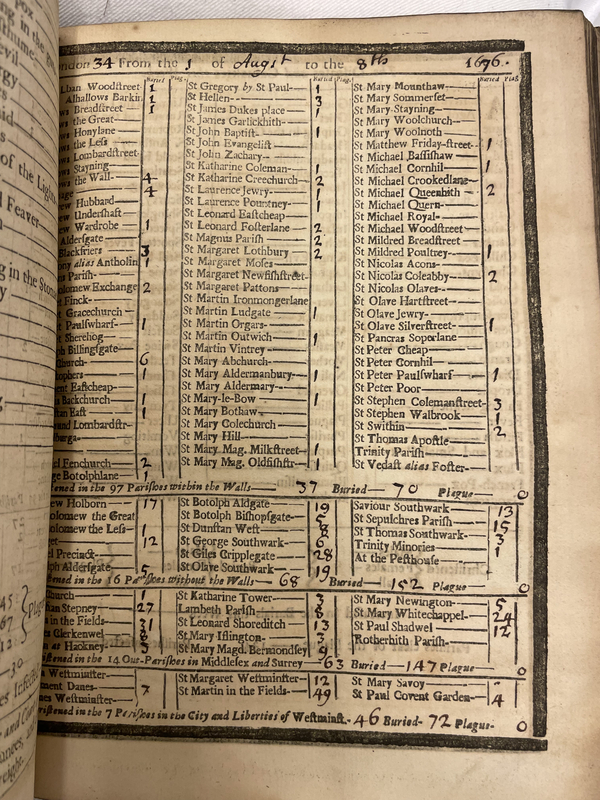 ndon 34 From the 1 of Augst to the 8th 1676.
Buried Plag.
Alban Woodſtreet 1
Alhallows Barkin 1
ws Breadſtreet 1
ws the Great
ws Honylane
ws the Leſs
ws Lombardſtreet
ws Stayning
ws the Wall 4
4
ew Hubbard
ew Underſhaft
ew Wardrobe 1
Alderſgate
Blackfriers 3
alias Antholin 1
Pariſh
olomew Exchange 2
t Finck
t Gracechurch
t Paulſwharf 1
t Sherehog
ph Billingſgate
church 6
ophers 1
ent Eaſtcheap
s Backchurch 1
ſtan Eaſt 1
und Lombardſtr
burga
el Fenchurch 2
ge Botolphlane 1
Buried Plag.
St Gregory by St Paul 1
St Hellen 3
St James Dukes place 1
St James Garlickhith
St John Baptiſt 1
St John Evangeliſt
St John Zachary
St Katharine Coleman 1
St Katharine Creechurch 2
St Laurence Jewry 1
St Laurence Pountney 1
St Leonard Eaſtcheap
St Leonard Foſterlane 2
St Magnus Pariſh 2
St Margaret Lothbury 2
St Margaret Moſes
St Margaret Newfiſhſtreet
St Margaret Pattons
St Martin Ironmongerlane
St Martin Ludgate 1
St Martin Orgars
St Martin Outwich 1
St Martin Vintrey
St Mary Abchurch
St Mary Aldermanbury 1
St Mary Aldermary
St Mary-le-Bow 1
St Mary Bothaw
St Mary Colechurch
St Mary Hill
St Mary Mag. Milkſtreet 1
St Mary Mag. Oldfiſhſtr 1
Buried Plag.
St Mary Mounthaw
St Mary Sommerſet
St Mary Stayning
St Mary Woolchurch
St Mary Woolnoth
St Matthew Friday-ſtreet 1
St Michael Baſſiſhaw
St Michael Cornhil 1
St Michael Crookedlane
St Michael Queenhith 2
St Michael Quern
St Michael Royal
St Michael Woodſtreet
St Mildred Breadſtreet
St Mildred Poultney 1
St Nicolas Acons
St Nicolas Coleabby 2
St Nicolas Olaves
St Olave Hartſtreet
St Olave Jewry
St Olave Silverſtreet 1
St Pancras Soperlane
St Peter Cheap
St Peter Cornhil
St Peter Paulſwharf 1
St Peter Poor
St Stephen Colemanſtreet 3
St Stephen Walbrook 1
St Swithin 2
St Thomas Apoſtle
Trinity Pariſh
St Vedaſt alias Foſter
ſtened in the 97 Pariſhes within the Walls 37 Buried 70 Plague 0
ew Holborn 17
olomew the Great
olomew the Leſs 1
12
el Precinct
lph Alderſgate 5
St Botolph Aldgate 19
St Botolph Biſhopſgate 5
St Dunſtan Weſt 8
St George Southwark 6
St Giles Cripplegate 28
St Olave Southwark 19
Saviour Southwark 13
St Sepulchres Pariſh 15
St Thomas Southwark 3
Trinity Minories 1
At the Peſthouſe
ſtened in the 16 Pariſhes without the Walls 68 Buried 152 Plague 0
church 1
han Stepney 27
s in the Fields 31
es Clerkenwel 8
n at Hackney 3
St Katharine Tower 3
Lambeth Pariſh 8
St Leonard Shoreditch 13
St Mary Iſlington 3
St Mary Magd. Bermondſey 9
St Mary Newington 5
St Mary Whitechappel 24
St Paul Shadwel 12
Rotherhith Pariſh
iſtened in the 14 Out-Pariſhes in Middleſex and Surrey 63 Buried 147 Plague 0
n Weſtminſter
ment Danes 7
mes Weſtminſter
St Margaret Weſtminſter 12
St Martin in the Fields 49
St Mary Savoy
St Paul Covent Garden 4
riſtened in the 7 Pariſhes in the City and Liberties of Weſtminſt. 46 Buried 72 Plague 0